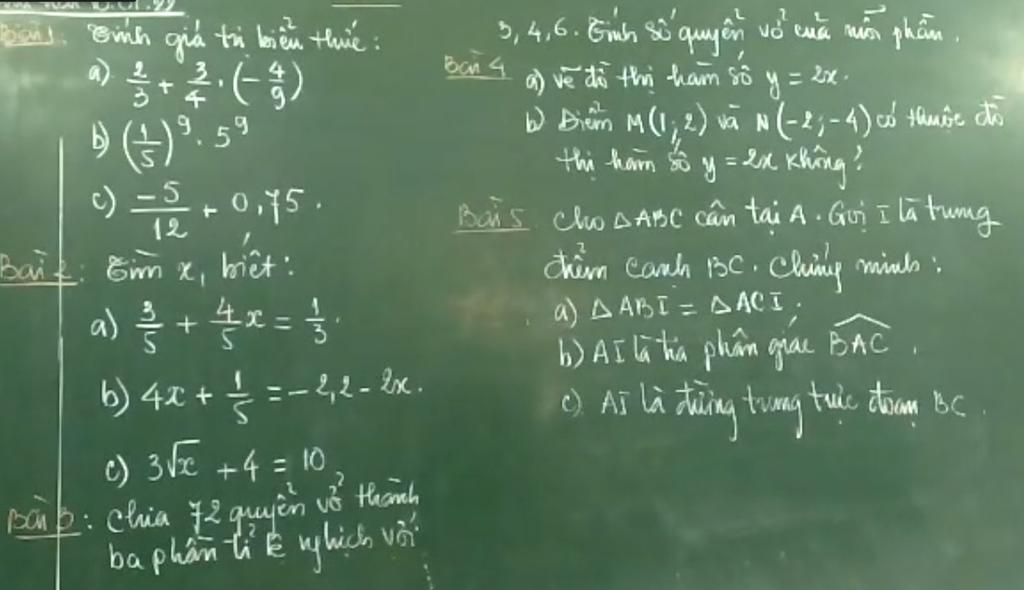 Bài 1: Tính giá trị biểu thức:
a) 2/3 + 3/4 . (-4/9)
b) (1/5)^9 . 5^9
c) -5/12 + 0,75.
Bài 2: Tìm x, biết:
a) 3/5 + 4/5 x = 1/3.
b) 4x + 1/5 = -2,2 - 2x.
c) 3√x + 4 = 10
Bài 3: Chia 72 quyển vở thành
ba phần tỉ lệ nghịch với
3, 4, 6. Tính số quyển vở của mỗi phần.
Bài 4 a) vẽ đồ thị hàm số y = 2x.
b) Điểm M(1; 2) và N(-2; -4) có thuộc đồ
thị hàm số y = 2x không?
Bài 5 Cho △ABC cân tại A. Gọi I là trung
điểm cạnh BC. Chứng minh:
a) △ABI = △ACI.
b) AI là tia phân giác BAC.
c) AI là đường trung trực đoạn BC.